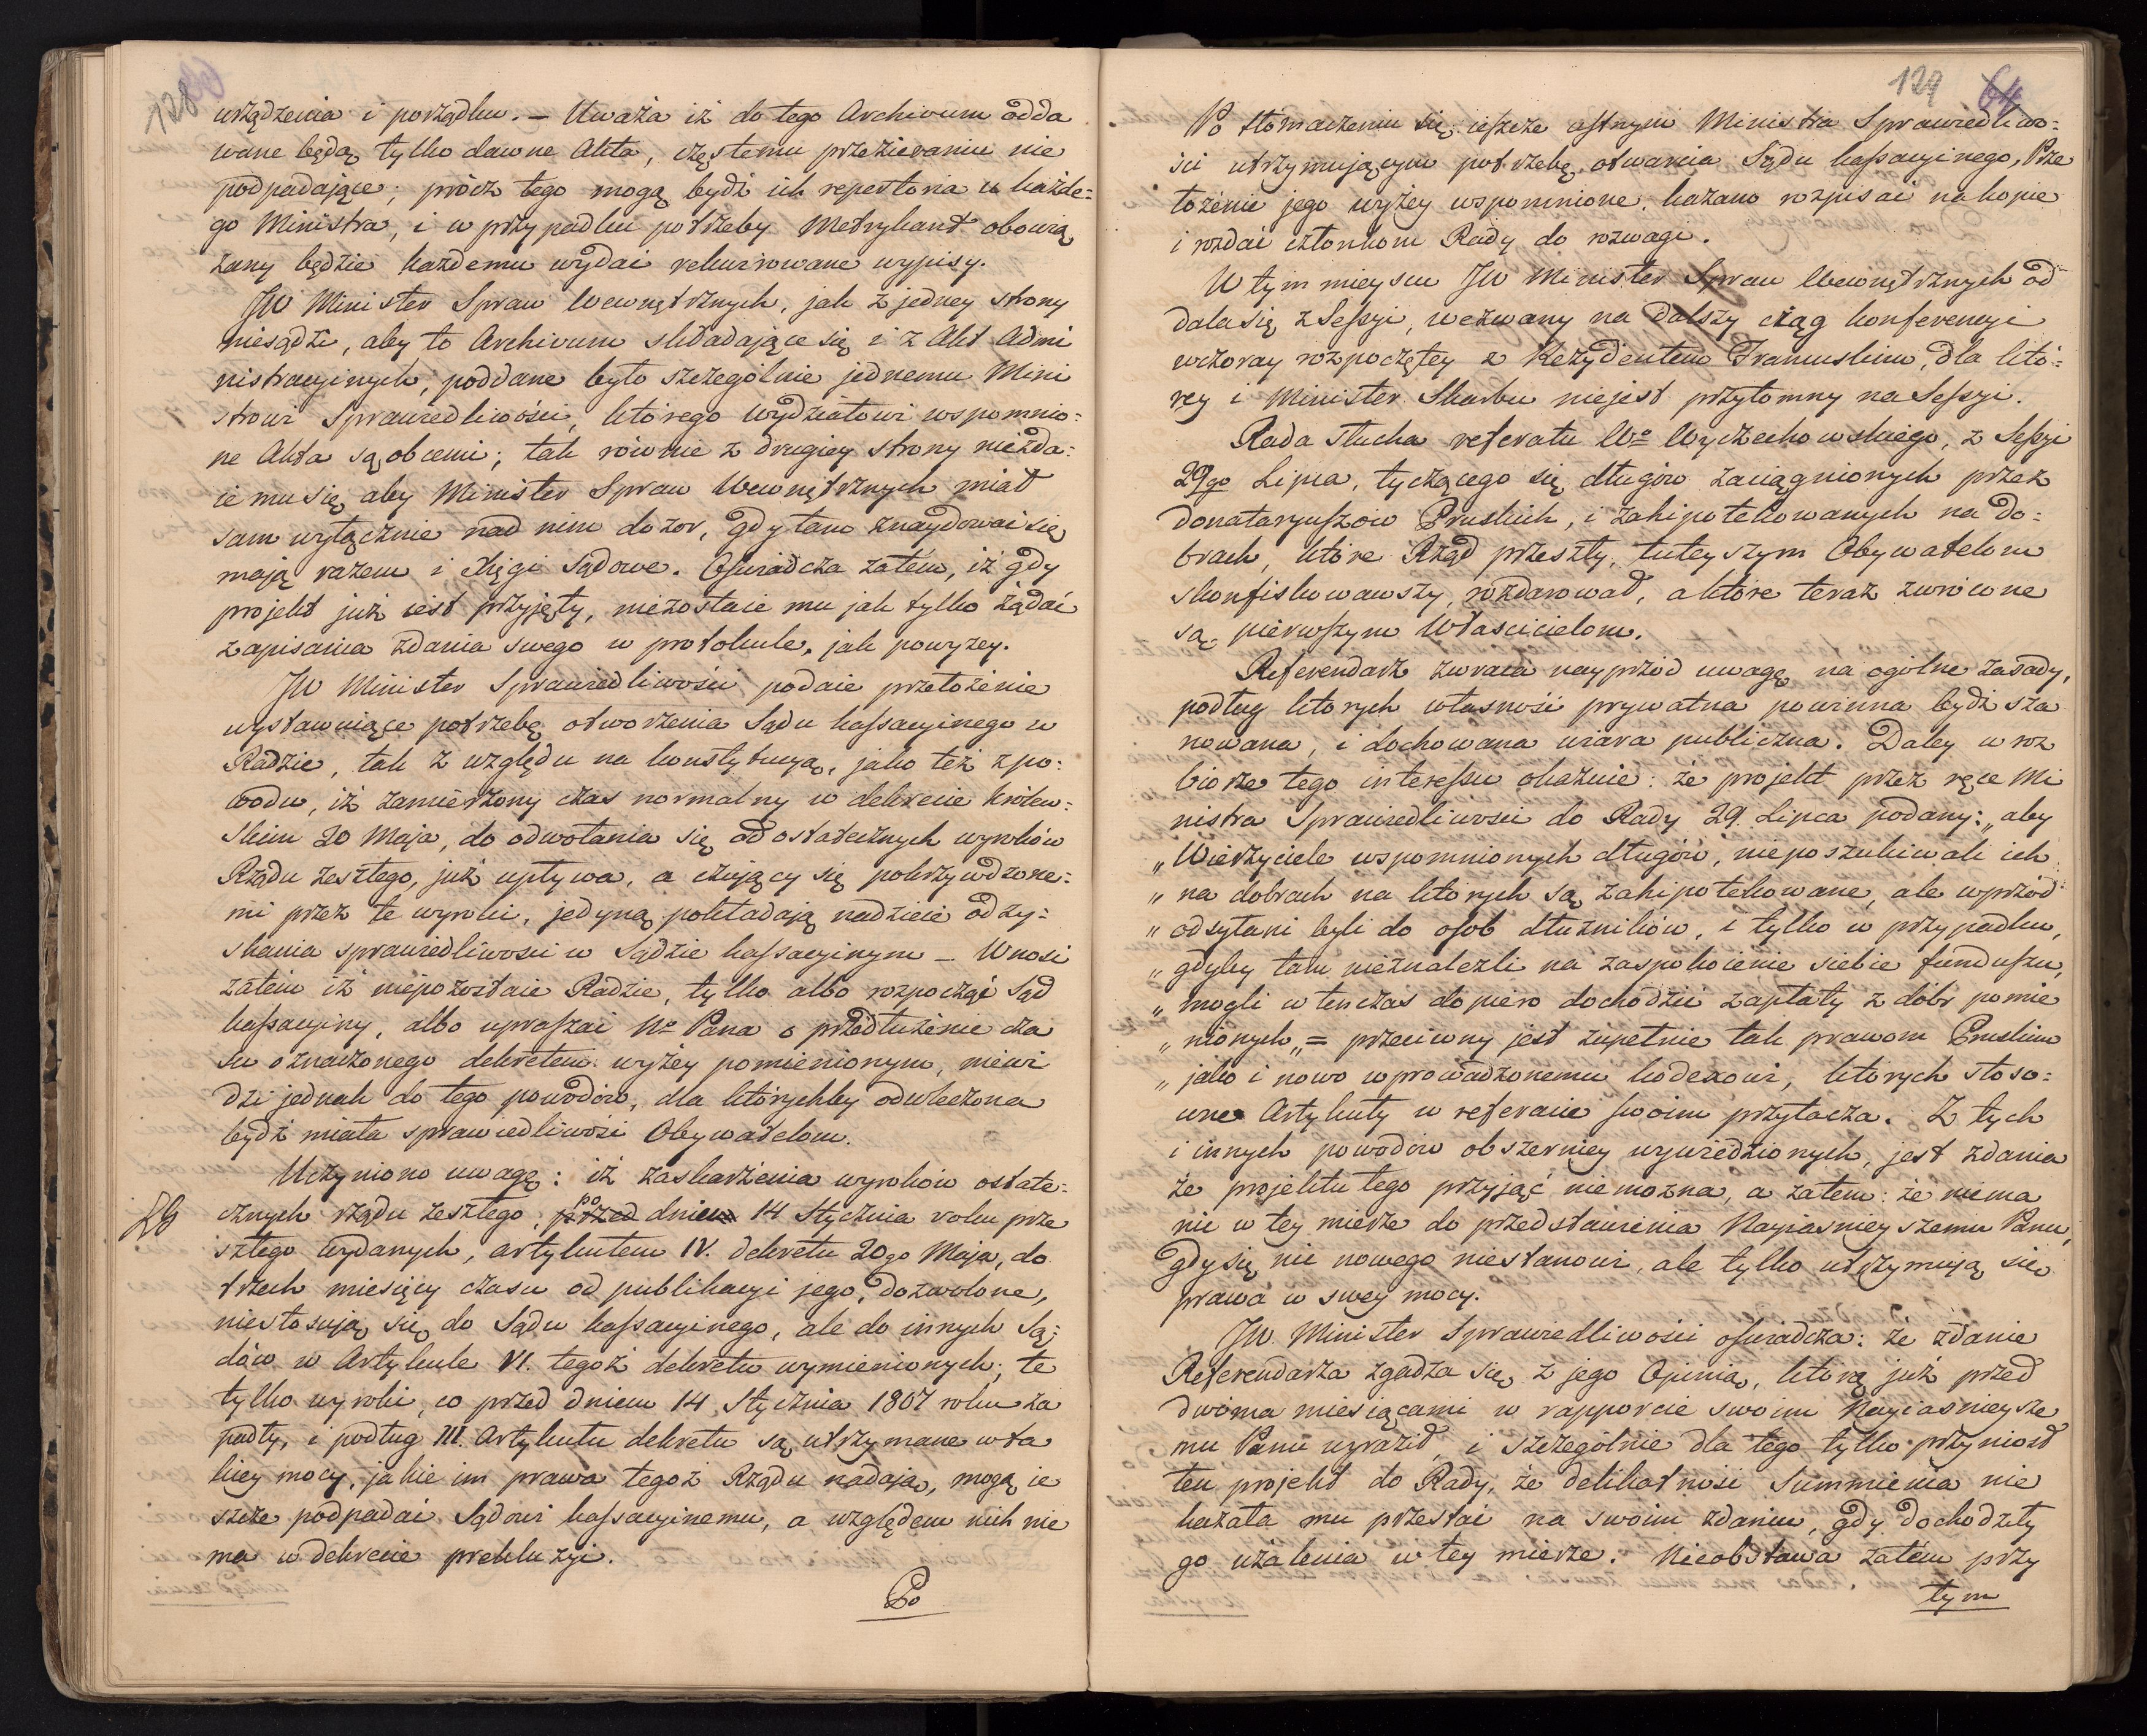 128
urządzenia i porządku. – Uważa iż do tego Archivum odda
wane będą tylko dawne Akta, częstemu przezieraniu nie
podpadające; prócz tego mogą bydź ich repertoria u każde=
go Ministra, i w przypadku potrzeby Metrykant obowią
zany będzie każdemu wydać rekwirowane wypisy.
JW Minister Spraw Wewnętrznych, jak z jedney strony
niesądzi, aby to Archivum składające się i z Akt Admi
nistracyinych, poddane było szczególnie jednemu Mini
strowi Sprawiedliwości, którego wydziałowi wspomnio=
ne Akta są obcemi; tak równie z drugiey strony niezda=
ie mu się, aby Minister Spraw Wewnętrznych miał
sam wyłącznie nad nim dozor, gdy tam znaydować się
mają razem i Xięgi sądowe. Oświadcza zatem, iż gdy
projekt już iest przyjęty, niezostaie mu jak tylko żądać
zapisania zdania swego w protokule, jak powyżey.
JW Minister Sprawiedliwości podaie przełożenie
wystawniące potrzebę otworzenia Sądu kassacyinego w
Radzie, tak z względu na konstytucyą, jako też z po=
wodu, iż zamierzony czas normalny w dekrecie królew=
skim 20 Maja, do odwołania się od ostatecznych wyroków
Rządu zeszłego, już upływa, a czujący się pokrzywdzone=
mi przez te wyroki, jedyną pokładają nadzieie odzy=
skania sprawiedliwości w Sądzie kassacyinym – Wnosi
zatem iż niepozostaie Radzie, tylko albo rozpocząć Sąd
kassacyiny, albo upraszać No Pana o przedłużenie cza
su oznaczonego dekretem wyżey pomienionym, niewi
dzi jednak do tego powodów, dla którychby odwleczona
bydź miała sprawiedliwość Obywatelom.
Uczyniono uwagę: iż zaskarżenia wyroków ostate=
cznych rządu zeszłego, po przed dniem 14 Stycznia roku prze
szłego wydanych, artykułem IV. dekretu 20go Maja, do
trzech miesięcy czasu od publikacyi jego, dozwolone,
niestosują się do Sądu kassacyinego, ale do innych Są=
dów w Artykule VI. tegoż dekretu wymienionych; te
tylko wyroki, co przed dniem 14 Stycznia 1807 roku za
padły, i podług III. Artykułu dekretu są utrzymane w ta
kiey mocy, jakie im prawa tegoż Rządu nadają, mogą ie
szcze podpadać Sądowi kassacyinemu, a względem nich nie
ma w dekrecie prekluzyi.
Po
129 64
Po tłómaczeniu się ieszcze ustnym Ministra Sprawiedliwo=
ści utrzymującym potrzebę otwarcia Sądu kassacyinego, Prze
łożenie jego wyżey wspomnione, kazano rozpisać na kopie
i rozdać członkom Rady do rozwagi.
W tym mieyscu JW Minister Spraw Wewnętrznych od
dala się z Sessyi, wezwany na dalszy ciąg konferencyi
wczoray rozpoczętey z Rezydentem Francuskim, dla któ=
rey i Minister Skarbu niejest przytomny na Sessyi.
Rada słucha referatu Wo Wyczechowskiego, z Sessyi
29go Lipca, tyczącego się długów zaciągnionych przez
donataryuszów Pruskich, i zahipotekowanych na do=
brach, które Rząd przeszły, tuteyszym Obywatelom
skonfiskowawszy, rozdarował, a które teraz zwrócone
są pierwszym Właścicielom.
Referendarz zwraca nayprzód uwagę na ogólne zasady,
podług których własność prywatna powinna bydź sza
nowana, i dochowana wiara publiczna. Daley w roz
biorze tego interessu okazuie: że projekt przez ręce Mi
nistra Sprawiedliwości do Rady 29. Lipca podany: „aby
„Wierzyciele wspomnionych długów, nieposzukiwali ich
„na dobrach na których są zahipotekowane, ale wprzód
„odsyłani byli do osob dłużników, i tylko w przypadku,
„gdyby tam nieznalezli na zaspokoienie siebie funduszu,
„mogli w tenczas dopiero dochodzić zapłaty z dóbr pomie
„nionych„ = przeciwny jest zupełnie tak prawom Pruskim
„jako i nowo wprowadzonemu kodexowi, których stoso=
wne Artykuły w referacie swoim przytacza. Z tych
i innych powodów obszerniey wywiedzionych, jest zdania
że projektu tego przyjąć niemożna, a zatem: że niema
nic w tey mierze do przedstawienia Nayiaśnieyszemu Panu,
gdy się nic nowego niestanowi, ale tylko utrzymują się
prawa w swey mocy.
JW. Minister Sprawiedliwości oświadcza: że zdanie
Referendarza zgadza się z jego Opinią, którą już przed
dwóma miesiącami w rapporcie swoim Nayiaśnieysze
mu Panu wyraził, i szczególnie dla tego tylko przyniosł
ten projekt do Rady, że delikatność Summienia nie
kazała mu przestać na swoim zdaniu, gdy dochodziły
go użalenia w tey mierze. Nieobstawa zatém przy
tym